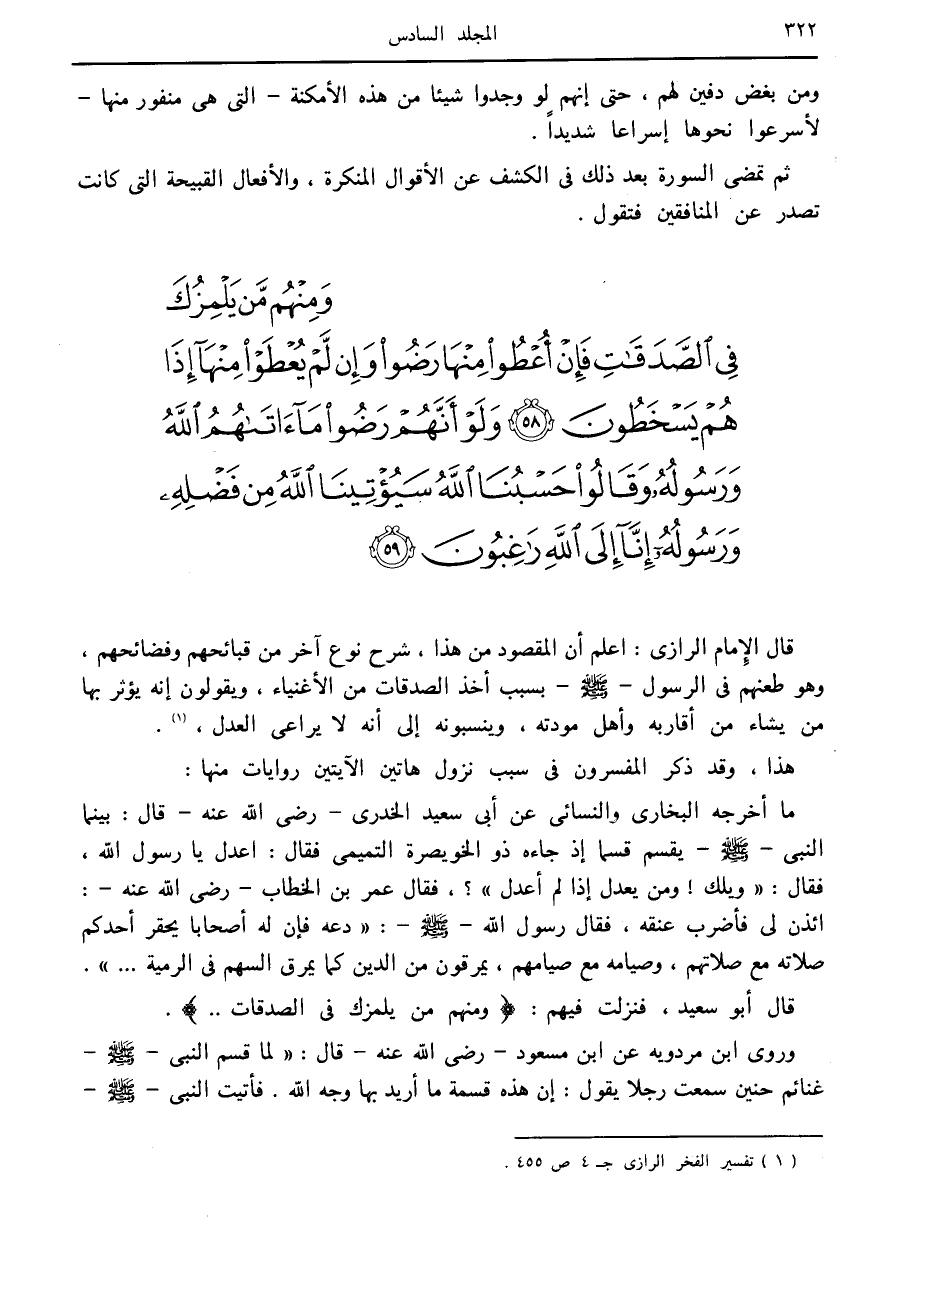 ٣٢٢
المجلد السادس
ومن بغض دفين لهم ، حتى إنهم لو وجدوا شيئا من هذه الأمكنة – التى هى منفور منها –
لأسرعوا نحوها إسراعا شديداً .
ثم تمضى السورة بعد ذلك فى الكشف عن الأقوال المنكرة ، والأفعال القبيحة التى كانت
تصدر عن المنافقين فتقول .
وَمِنْهُم مَّن يَلْمِزُكَ
فِى ٱلصَّدَقَٰتِ فَإِنْ أُعْطُوا۟ مِنْهَا رَضُوا۟ وَإِن لَّمْ يُعْطَوْا۟ مِنْهَآ إِذَا
هُمْ يَسْخَطُونَ ٥٨ وَلَوْ أَنَّهُمْ رَضُوا۟ مَآ ءَاتَىٰهُمُ ٱللَّهُ
وَرَسُولُهُۥ وَقَالُوا۟ حَسْبُنَا ٱللَّهُ سَيُؤْتِينَا ٱللَّهُ مِن فَضْلِهِۦ
وَرَسُولُهُۥٓ إِنَّآ إِلَى ٱللَّهِ رَٰغِبُونَ ٥٩
قال الإمام الرازى : اعلم أن المقصود من هذا ، شرح نوع آخر من قبائحهم وفضائحهم ،
وهو طعنهم فى الرسول – ﷺ – بسبب أخذ الصدقات من الأغنياء ، ويقولون إنه يؤثر بها
من يشاء من أقاربه وأهل مودته ، وينسبونه إلى أنه لا يراعى العدل ، (١) .
هذا ، وقد ذكر المفسرون فى سبب نزول هاتين الآيتين روايات منها :
ما أخرجه البخارى والنسائى عن أبى سعيد الخدرى – رضى الله عنه – قال : بينما
النبى – ﷺ – يقسم قسما إذ جاءه ذو الخويصرة التميمى فقال : اعدل يا رسول الله ،
فقال : « ويلك ! ومن يعدل إذا لم أعدل » ؟ ، فقال عمر بن الخطاب – رضى الله عنه – :
ائذن لى فأضرب عنقه ، فقال رسول الله – ﷺ – : « دعه فإن له أصحابا يحقر أحدكم
صلاته مع صلاتهم ، وصيامه مع صيامهم ، يمرقون من الدين كما يمرق السهم فى الرمية ... » .
قال أبو سعيد ، فنزلت فيهم : ﴿ ومنهم من يلمزك فى الصدقات .. ﴾ .
وروى ابن مردويه عن ابن مسعود – رضى الله عنه – قال : « لما قسم النبى – ﷺ –
غنائم حنين سمعت رجلا يقول : إن هذه قسمة ما أريد بها وجه الله . فأتيت النبى – ﷺ –
( ١ ) تفسير الفخر الرازى جـ ٤ ص ٤٥٥ .